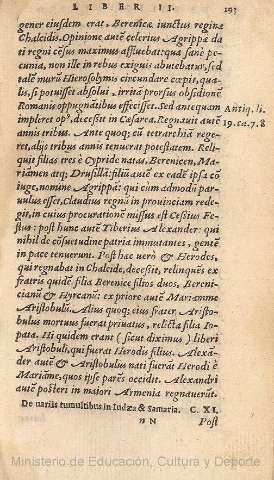 LIBER II.
293
gener eiusdem erat, Berenicæ iunctus reginæ
Chalcidis. Opinione autē celerius Agrippæ di
ti regni cēsus maximus affluebat: qua sanè pe-
cunia, non ille in rebus exiguis abutebatur, sed
talē murū Hierosolymis circundare cœpit, qua-
lis, si potuisset absolui, irritā prorsus obsidionē
Romanis oppugnātibus effecisset. Sed antequam
Antiq. li.
impleret op⁹, decessit in Cæsarea. Regnauit autē
19. ca. 7. 8
annis tribus. Ante quoq; cū tetrarchiā rege-
ret, alijs tribus annis tenuerat potestatem. Reli-
quit filias tres è Cypride natas, Berenicen, Ma-
riāmen atq; Drusillā: filiū autē ex eadē ipsa cō
iuge, nomine Agrippā: qui cum admodū par-
uulus esset, Claudius regna in prouinciam rede-
git, in cuius procurationē missus est Cessius Fe-
stus: post hunc autē Tiberius Alexander: qui
nihil de cōsuetudine patria immutantes, gentē
in pace tenuerunt. Post hæc uerò & Herodes,
qui regnabat in Chalcide, decessit, relinquēs ex
fratris quidē filia Berenice filios duos, Bereni-
cianū & Hyrcanū: ex priore autē Mariamme
Aristobulū. Alius quoq; eius frater Aristo-
bulus mortuus fuerat priuatus, relicta filia Io-
pata. Hi quidem erant (sicut diximus) liberi
Aristobuli, qui fuerat Herodis filius. Alexā-
der autē & Aristobulus nati fuerāt Herodi è
Mariāme, quos ipse parēs occidit. Alexandri
autē posteri in maiori Armenia regnauerūt.
De uarijs tumultibus in Iudæa & Samaria. C. XI.
nN
Post
Ministerio de Educación, Cultura y Deporte